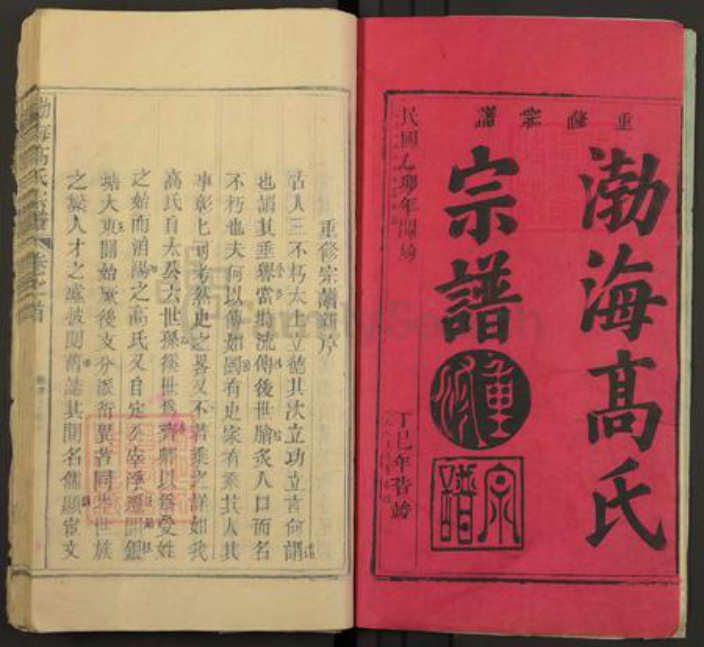 重修宗譜
渤海高氏
宗譜
重修
宗譜
民國乙卯年開局
丁巳年告竣
重修宗譜新序
古人三不朽太上立德其次立功立言何謂
也謂其垂譽當
流傳後世膾炙人口而名
不朽也夫何以傳如國有史家有乘其人其
事彰七可考然史之畧又不若乘之詳如我
高氏自太公六世孫徯世爲齊卿以爲受姓
之始而
之高氏又自定公宰浮
銀
塘大東開始厥後支分派衍異苦同
世族
之繁人才之盛披閱舊誌其間名儒顯宦文
渤海高氏宗譜
卷
首
FamilySearch